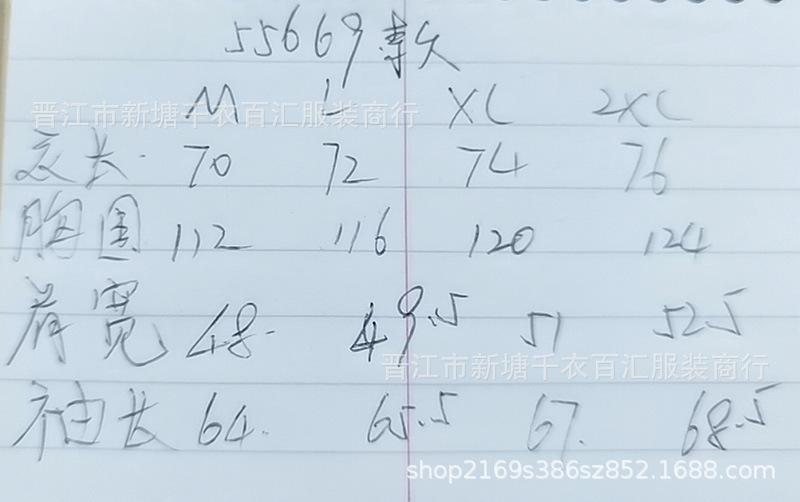 55669款
M L XL 2XL
晋江市新塘千衣百汇服装商行
衣长 70 72 74 76
胸围 112 116 120 124
肩宽 48 49.5 51 52.5
晋江市新塘千衣百汇服装商行
袖长 64 65.5 67 68.5
shop2169s386sz852.1688.com